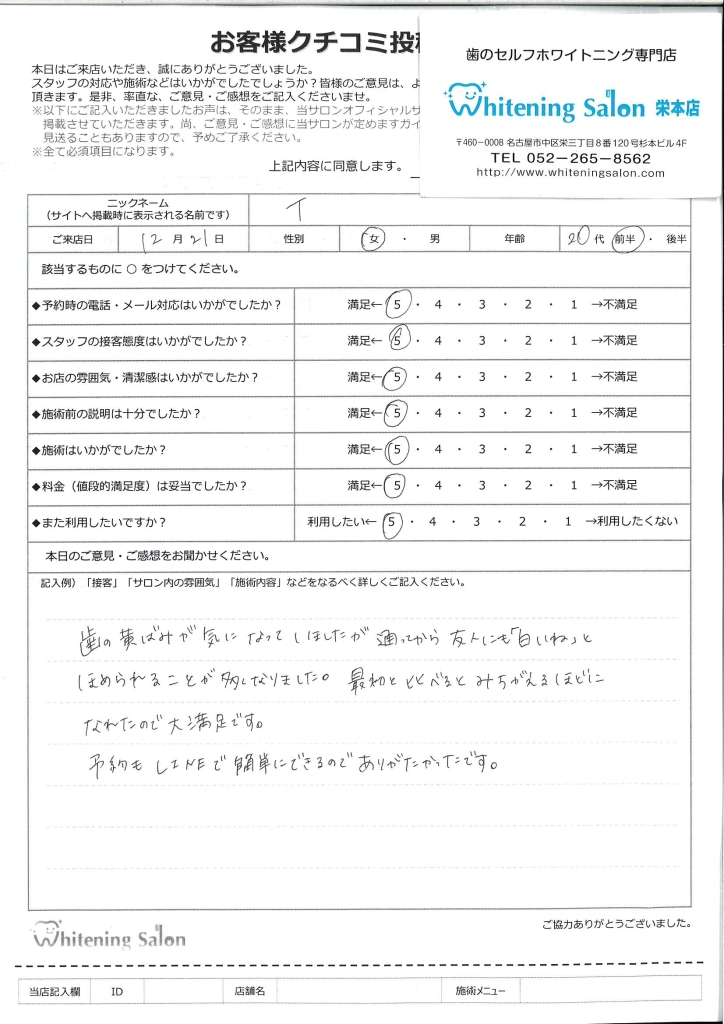 お客様クチコミ投稿
本日はご来店いただき、誠にありがとうございました。
スタッフの対応や施術などはいかがでしたでしょうか?皆様のご意見は、よ
頂きます。是非、率直な、ご意見・ご感想をご記入くださいませ。
※以下にご記入いただきましたお声は、そのまま、当サロンオフィシャルサ
掲載させていただきます。尚、ご意見・ご感想に当サロンが定めますガイ
見送ることもありますので、予めご了承ください。
※全て必須項目になります。
上記内容に同意します。
歯のセルフホワイトニング専門店
Whitening Salon 栄本店
〒460-0008 名古屋市中区栄三丁目8番120号杉本ビル4F
TEL 052-265-8562
http://www.whiteningsalon.com
ニックネーム
(サイトへ掲載時に表示される名前です)
ご来店日 12月21日 性別 女・男 年齢 20代 前半・後半
該当するものに○をつけてください。
◆予約時の電話・メール対応はいかがでしたか? 満足←5・4・3・2・1→不満足
◆スタッフの接客態度はいかがでしたか? 満足←5・4・3・2・1→不満足
◆お店の雰囲気・清潔感はいかがでしたか? 満足←5・4・3・2・1→不満足
◆施術前の説明は十分でしたか? 満足←5・4・3・2・1→不満足
◆施術はいかがでしたか? 満足←5・4・3・2・1→不満足
◆料金(値段的満足度)は妥当でしたか? 満足←5・4・3・2・1→不満足
◆また利用したいですか? 利用したい←5・4・3・2・1→利用したくない
本日のご意見・ご感想をお聞かせください。
記入例)「接客」「サロン内の雰囲気」「施術内容」などをなるべく詳しくご記入ください。
歯の黄ばみが気になっていましたが通ってから友人にも「白いね」と
ほめられることが多くなりました。最初と比べるとみちがえるほどに
なれたので大満足です。
予約もLINEで簡単にできるのでありがたかったです。
ご協力ありがとうございました。
Whitening Salon
当店記入欄 ID 店舗名 施術メニュー